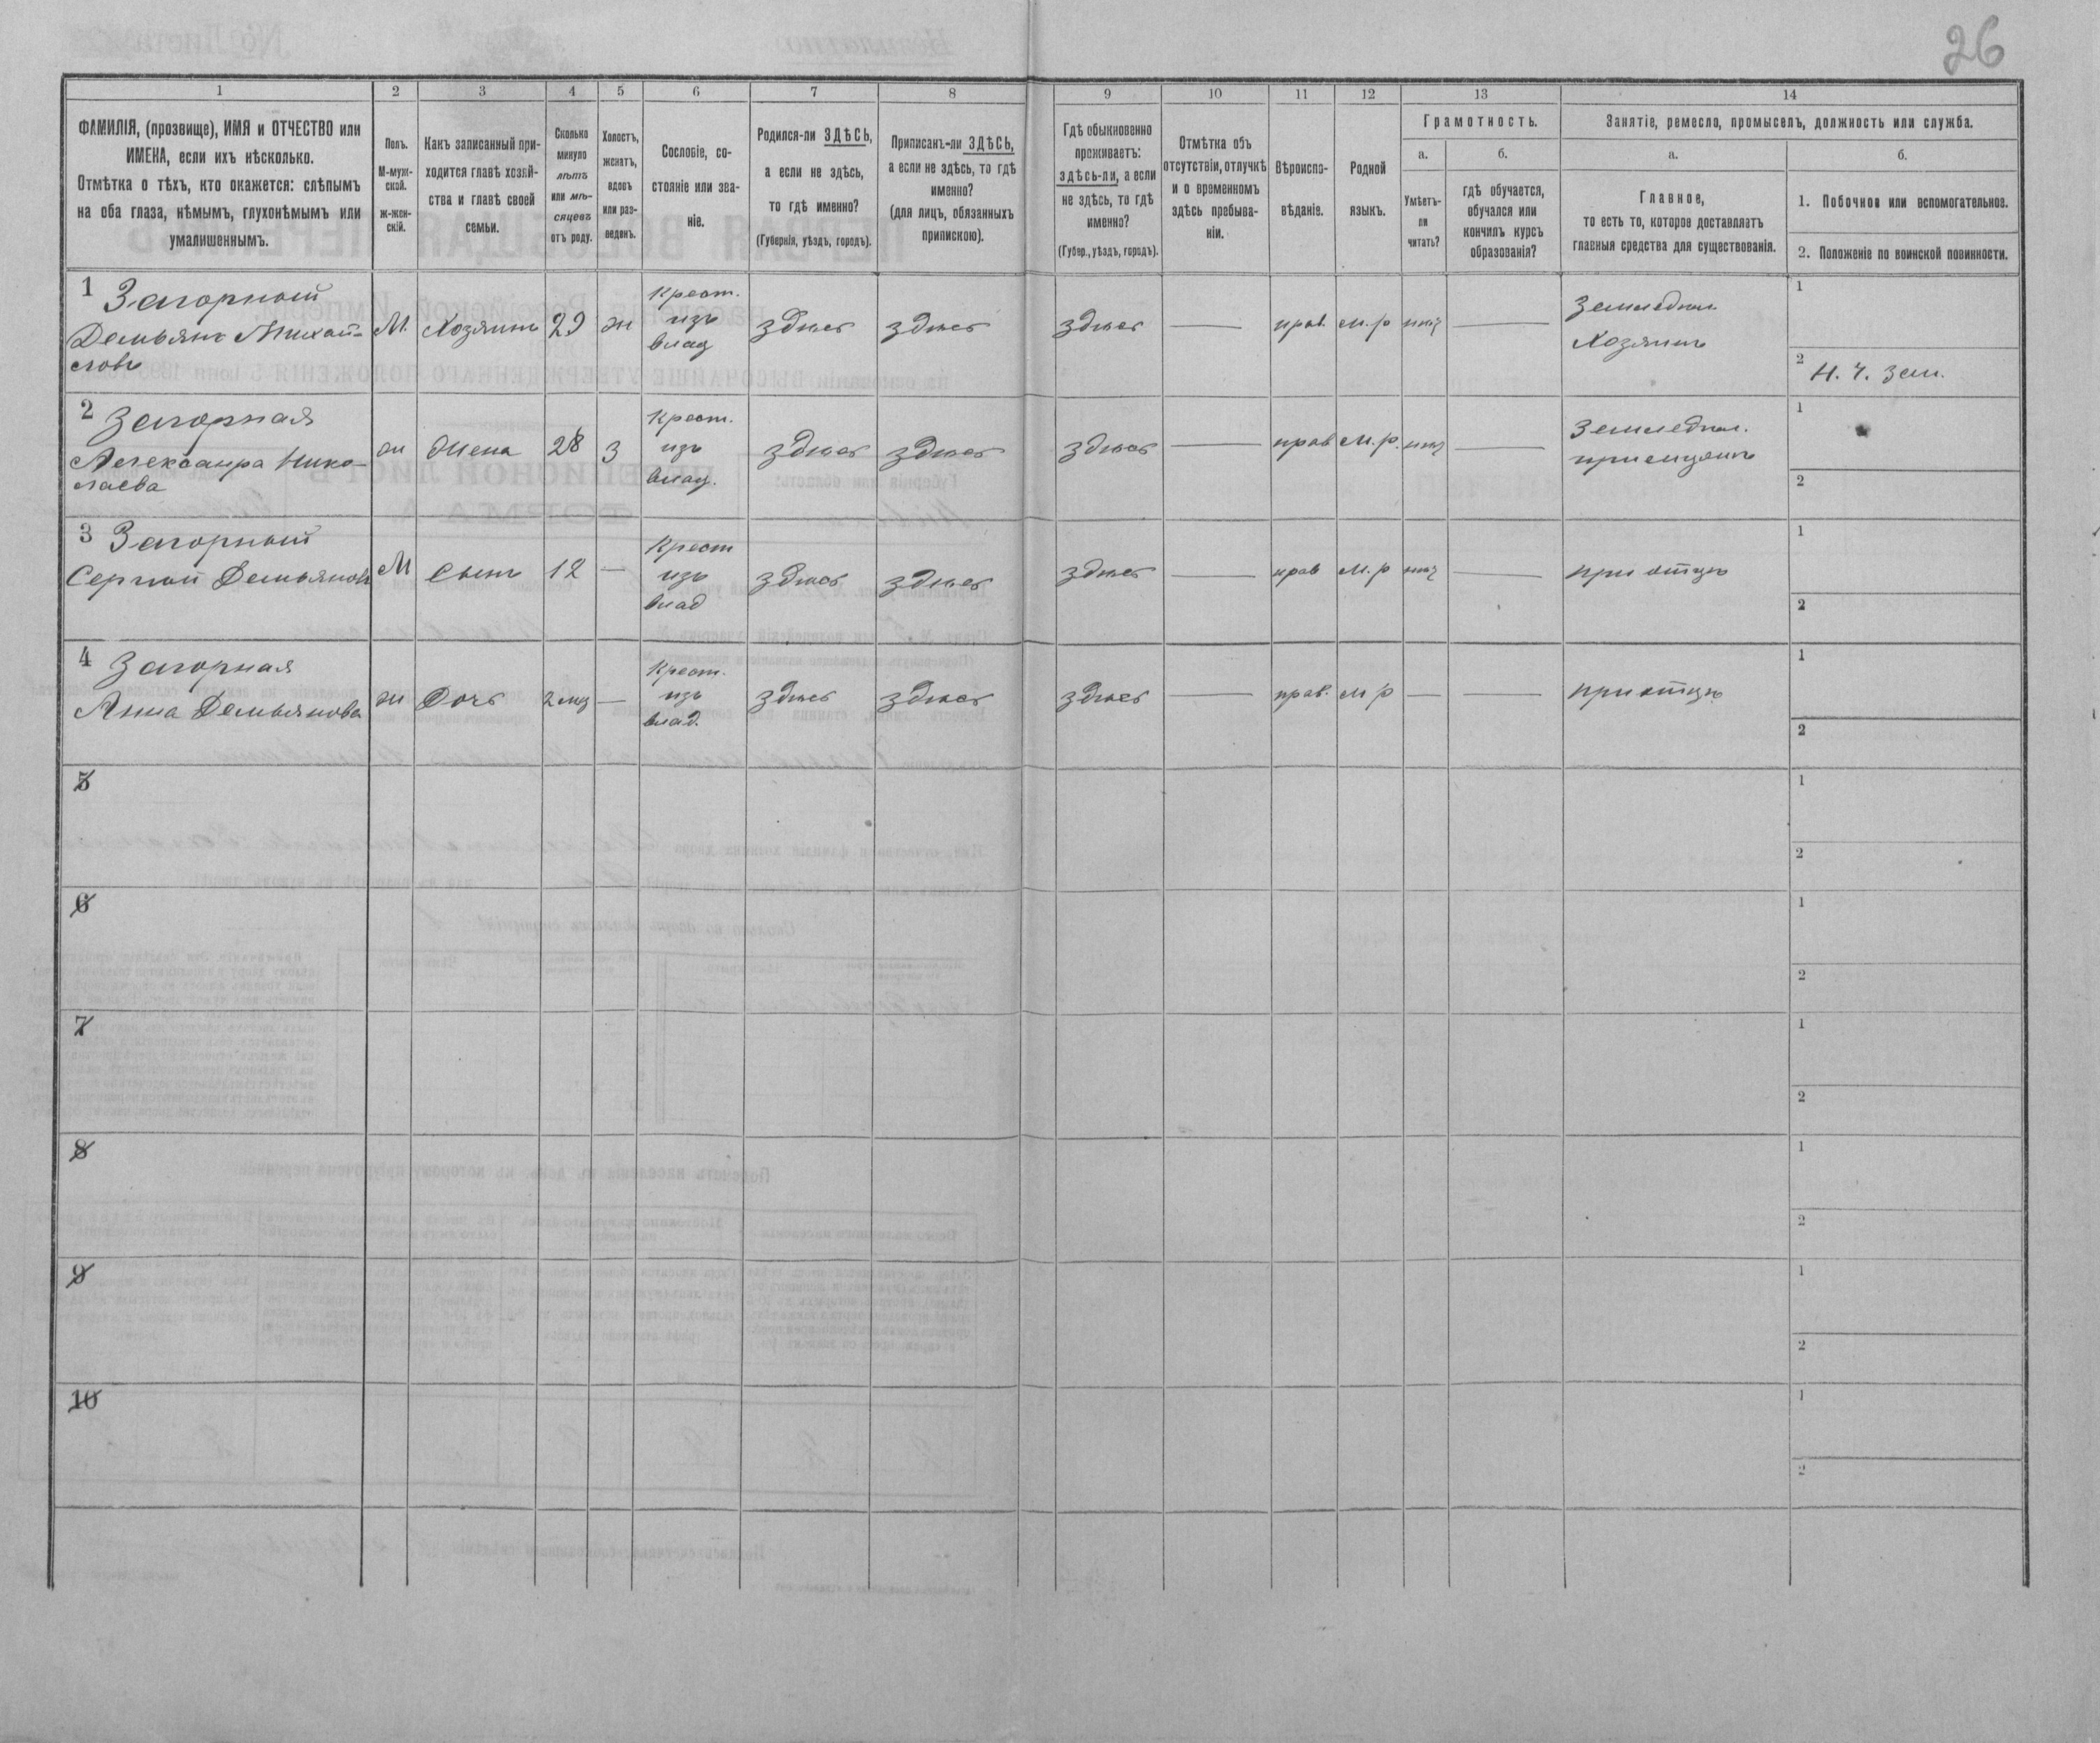 26
1 2 3 4 5 6 7 8 9 10 11 12 13 14
ФАМИЛІЯ, (прозвище), ИМЯ и ОТЧЕСТВО или
ИМЕНА, если ихъ нѣсколько.
Отмѣтка о тѣхъ, кто окажется: слѣпымъ
на оба глаза, нѣмымъ, глухонѣмымъ или
умалишеннымъ.
Полъ.
М-муж-
ской.
ж-жен-
скій.
Какъ записанный при-
ходится главѣ хозяй-
ства и главѣ своей
семьи.
Сколько
минуло
лѣтъ
или мѣ-
сяцевъ
отъ роду.
Холостъ,
женатъ,
вдовъ
или раз-
веденъ.
Сословіе, со-
стояніе или зва-
ніе.
Родился-ли ЗДѢСЬ,
а если не здѣсь,
то гдѣ именно?
(Губернія, уѣздъ, городъ).
Приписанъ-ли ЗДѢСЬ,
а если не здѣсь, то гдѣ
именно?
(для лицъ, обязанныхъ
припискою).
Гдѣ обыкновенно
проживаетъ:
здѣсь-ли, а если
не здѣсь, то гдѣ
именно?
(Губер., уѣздъ, городъ).
Отмѣтка объ
отсутствіи, отлучкѣ
и о временномъ
здѣсь пребыва-
ніи.
Вѣроиспо-
вѣданіе.
Родной
языкъ.
Грамотность.
а.
Умѣетъ-
ли
читать?
б.
гдѣ обучается,
обучался или
кончилъ курсъ
образованія?
Занятіе, ремесло, промыселъ, должность или служба.
а.
Главное,
то есть то, которое доставляетъ
главныя средства для существованія.
б.
1. Побочное или вспомогательное.
2. Положеніе по воинской повинности.
1 Загорный
Демьянъ Михай-
ловъ
М.
Хозяинъ
29
ж
Крест.
изъ
влад
здѣсь
здѣсь
здѣсь
прав.
м. р
нѣт
Земледѣл.
Хозяинъ
1
2 Н. Ч. Зап.
2 Загорная
Александра Нико-
лаева
ж
Жена
28
З
Крест.
изъ
влад.
здѣсь
здѣсь
здѣсь
прав
М. р.
нѣт
Земледѣл.
1
2
3 Загорный
Сергѣй Демьянов
М
Сынъ
12
—
Крест
изъ
влад
здѣсь
здѣсь
здѣсь
прав
М. р
нѣт
при отцѣ
1
2
4 Загорная
Анна Демьянова
ж
Дочь
2 мц
—
Крест.
изъ
влад.
здѣсь
здѣсь
здѣсь
прав.
М р
—
при отцѣ
1
2
5
1
2
6
1
2
7
1
2
8
1
2
9
1
2
10
1
2